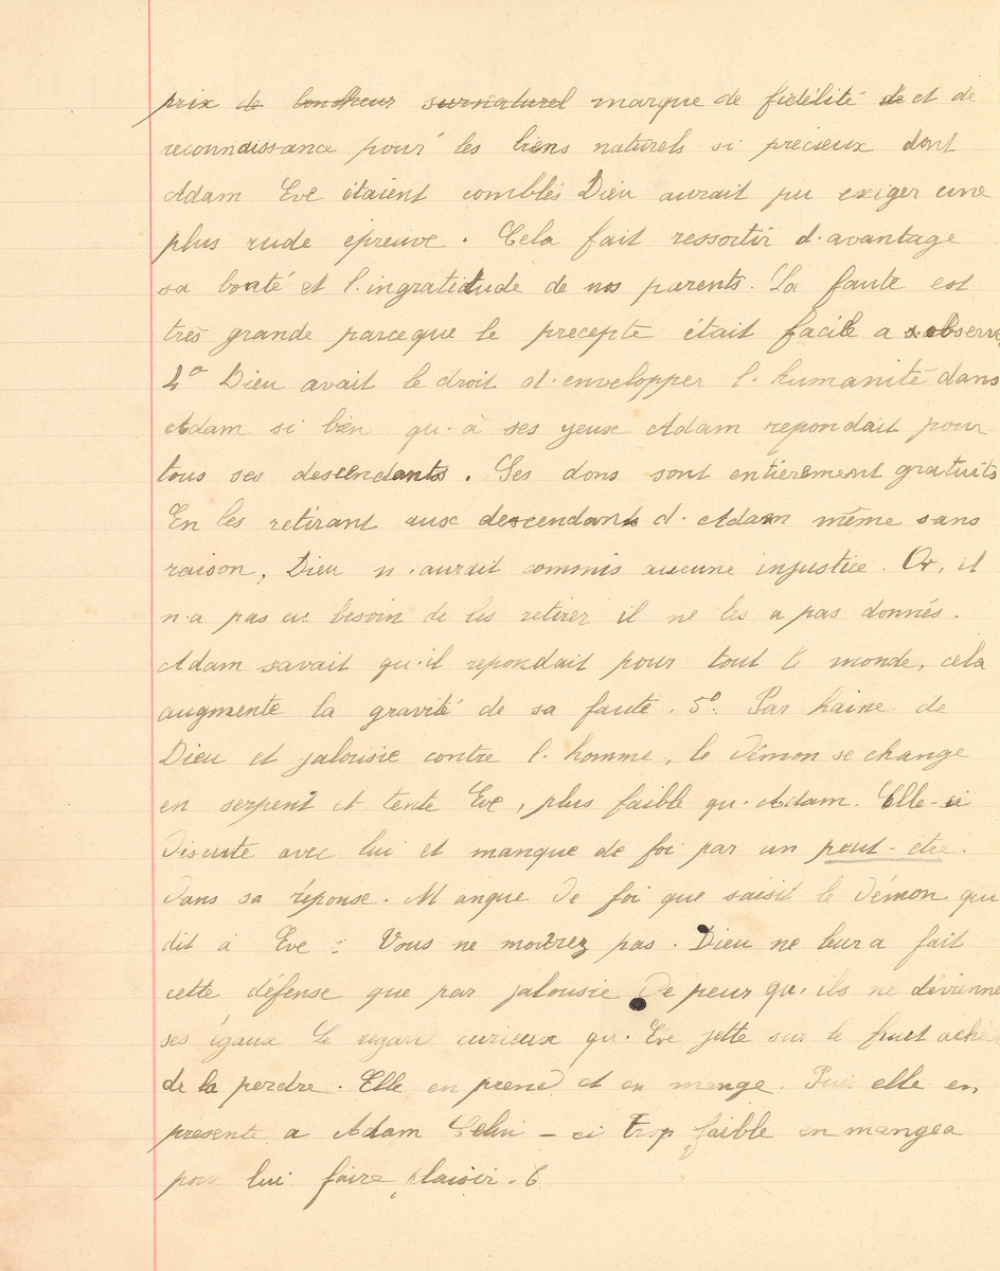 prix de bonheur surnaturel marque de fidélité de et de
reconnaissance pour les biens naturels si précieux dont
Adam Eve étaient comblés Dieu aurait pu exiger une
plus rude épreuve. Cela fait ressortir d'avantage
sa bonté et l'ingratitude de nos parents. La faute est
très grande parceque le precepte était facile a observe
4° Dieu avait le droit d'envelopper l'humanité dans
Adam si bien qu'à ses yeux Adam repondait pour
tous ses descendants. Ses dons sont entièrement gratuits
En les retirant aux descendants d'Adam même sans
raison, Dieu n'aurait commis aucune injustice. Or, il
n'a pas eu besoin de les retirer il ne les a pas donnés.
Adam savait qu'il repondait pour tout le monde, cela
augmente la gravité de sa faute. 5°. Par haine de
Dieu et jalousie contre l'homme, le démon se change
en serpent et tente Eve, plus faible qu'Adam. Elle-ci
discute avec lui et manque de foi par un peut-être.
dans sa réponse. Manque de foi que saisit le démon qui
dit à Eve : Vous ne mourrez pas. Dieu ne leur a fait
cette défense que par jalousie De peur qu'ils ne dévienne
ses égaux Le regard curieux qu'Eve jette sur le fruit
de la perdre. Elle en prend et en mange. Puis elle en
presente a Adam Celui-ci trop faible en mangea
pour lui faire plaisir. 6